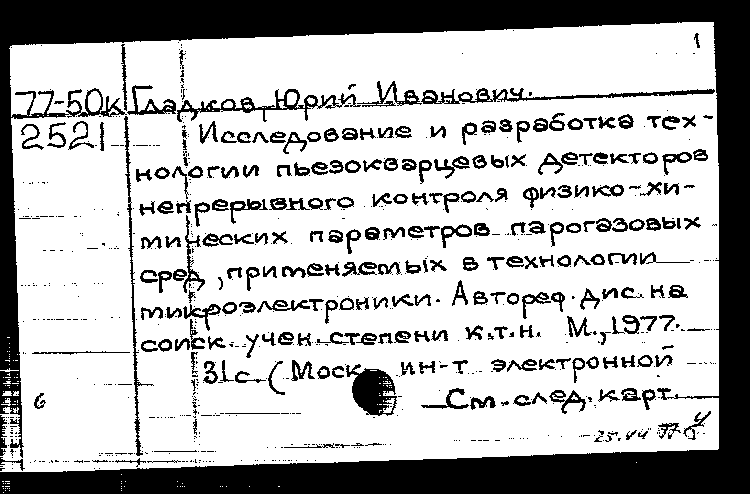 1
77-50к Гладков, Юрий Иванович.
2521 Исследование и разработка тех-
нологии пьезокварцевых детекторов
непрерывного контроля физико-хи-
мических параметров парогазовых
сред, применяемых в технологии
микроэлектроники. Автореф. дис. на
соиск. учен. степени к.т.н. М., 1977.
31с. (Моск. ин-т электронной
6 См. след. карт.